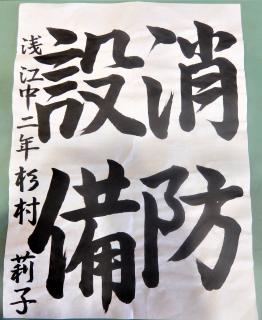 消防
設備
浅江中二年杉村莉子